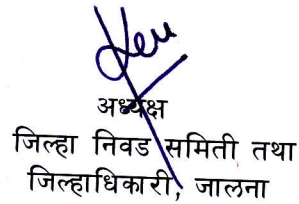 अध्यक्ष
जिल्हा निवड समिती तथा
जिल्हाधिकारी, जालना